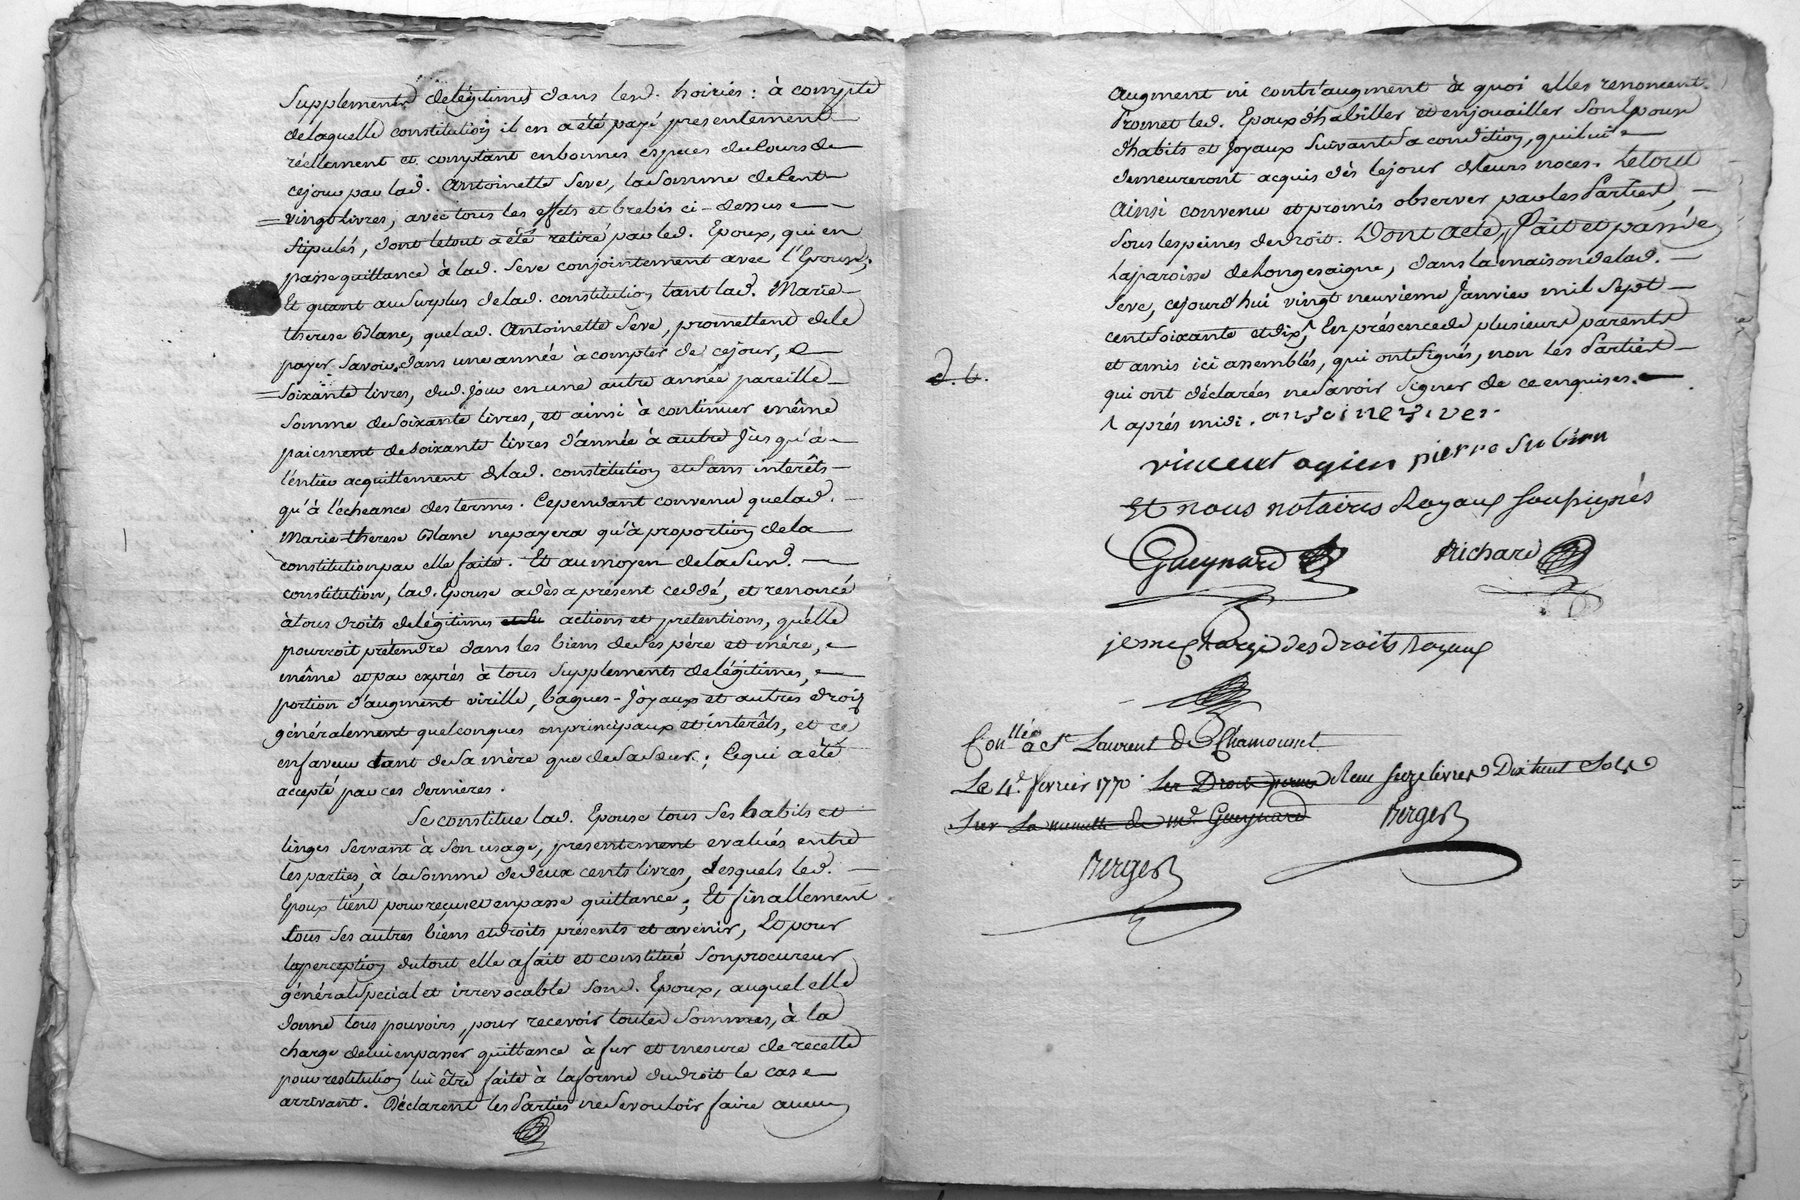 Supplements de légitimes dans lesd. hoiries : à compte
de laquelle constitution il en a été payé presentement
réellement et comptant en bonnes especes du cours de
ce jour par lad. Antoinette Seve, la somme de Cent
vingt livres, avec tous les effets et brebis ci-dessus
stipulés, dont le tout a été retiré par led. Epoux, qui en
passe quittance à lad. Seve conjointement avec l'Epouse ;
Et quant au surplus de lad. constitution tant lad. Marie
therese Blanc, que lad. Antoinette Seve, promettent de le
payer, savoir, dans une année à compter de ce jour,
soixante livres, dud. jour en une autre année pareille
somme de soixante livres, et ainsi à continuer même
paiement de soixante livres d'année à autre jusqu'à
l'entier acquittement de lad. constitution et sans interêts
qu'à l'écheance des termes. Cependant convenu que lad.
Marie-therese Blanc ne payera qu'à proportion de la
constitution par elle faite. Et au moyen de la susd.
constitution, lad. Epouse a dès a présent ceddé, et renoncé
à tous droits de légitimes actions et prétentions, qu'elle
pourroit prétendre dans les biens de ses père et mère,
même et par exprés à tous supplements de légitimes,
portion d'augment virille, bagues-joyaux et autres droits
généralement quelconques en principaux et interêts, et ce
en faveur tant de sa mère que de sa sœur ; Ce qui a été
accepté par ces dernieres.
Se constitue lad. Epouse tous ses habits et
linges servant à son usage, presentement evalués entre
les parties, à la somme de deux cents livres, desquels led.
Epoux tient pour reçus et en passe quittance ; Et finallement
tous ses autres biens et droits présents et avenir, Et pour
la perception du tout elle a fait et constitué son procureur
général special et irrevocable sond. Epoux, auquel elle
donne tous pouvoirs, pour recevoir toutes sommes, à la
charge de lui en passer quittance à fur et mesure de recette
pour restitution lui être faite à la forme du droit le cas
arrivant. Déclarent les Parties ne se vouloir faire aucun
augment ni contr'augment à quoi elles renoncent.
Promet led. Epoux d'habiller et enjouailler son Epouse
d'habits et joyaux suivant sa condition, qui lui
demeureront acquis dès le jour de leurs noces. Le tout
Ainsi convenu et promis observer par les Parties,
sous les peines de droit. Dont acte, Fait et passé
la paroisse de Longesaigne, dans la maison de lad.
Seve, cejourd'hui vingt neuvieme Janvier mil sept
cent soixante et dix, En présence de plusieurs parents
et amis ici assemblés, qui ont signés, non les Parties
qui ont déclarées ne savoir signer de ce enquises.
après midi.
vincent ogien pierre
Et nous notaires Royaux soussignés
Gueynard Richard
je me charge des droits Royaux
Con.llé à St Laurent de Chamousset
Le 4e. fevrier 1770 Les Droits Reçu seize livres Dix huit sols
Sur La minutte de me. Gueynard Berger
Berger